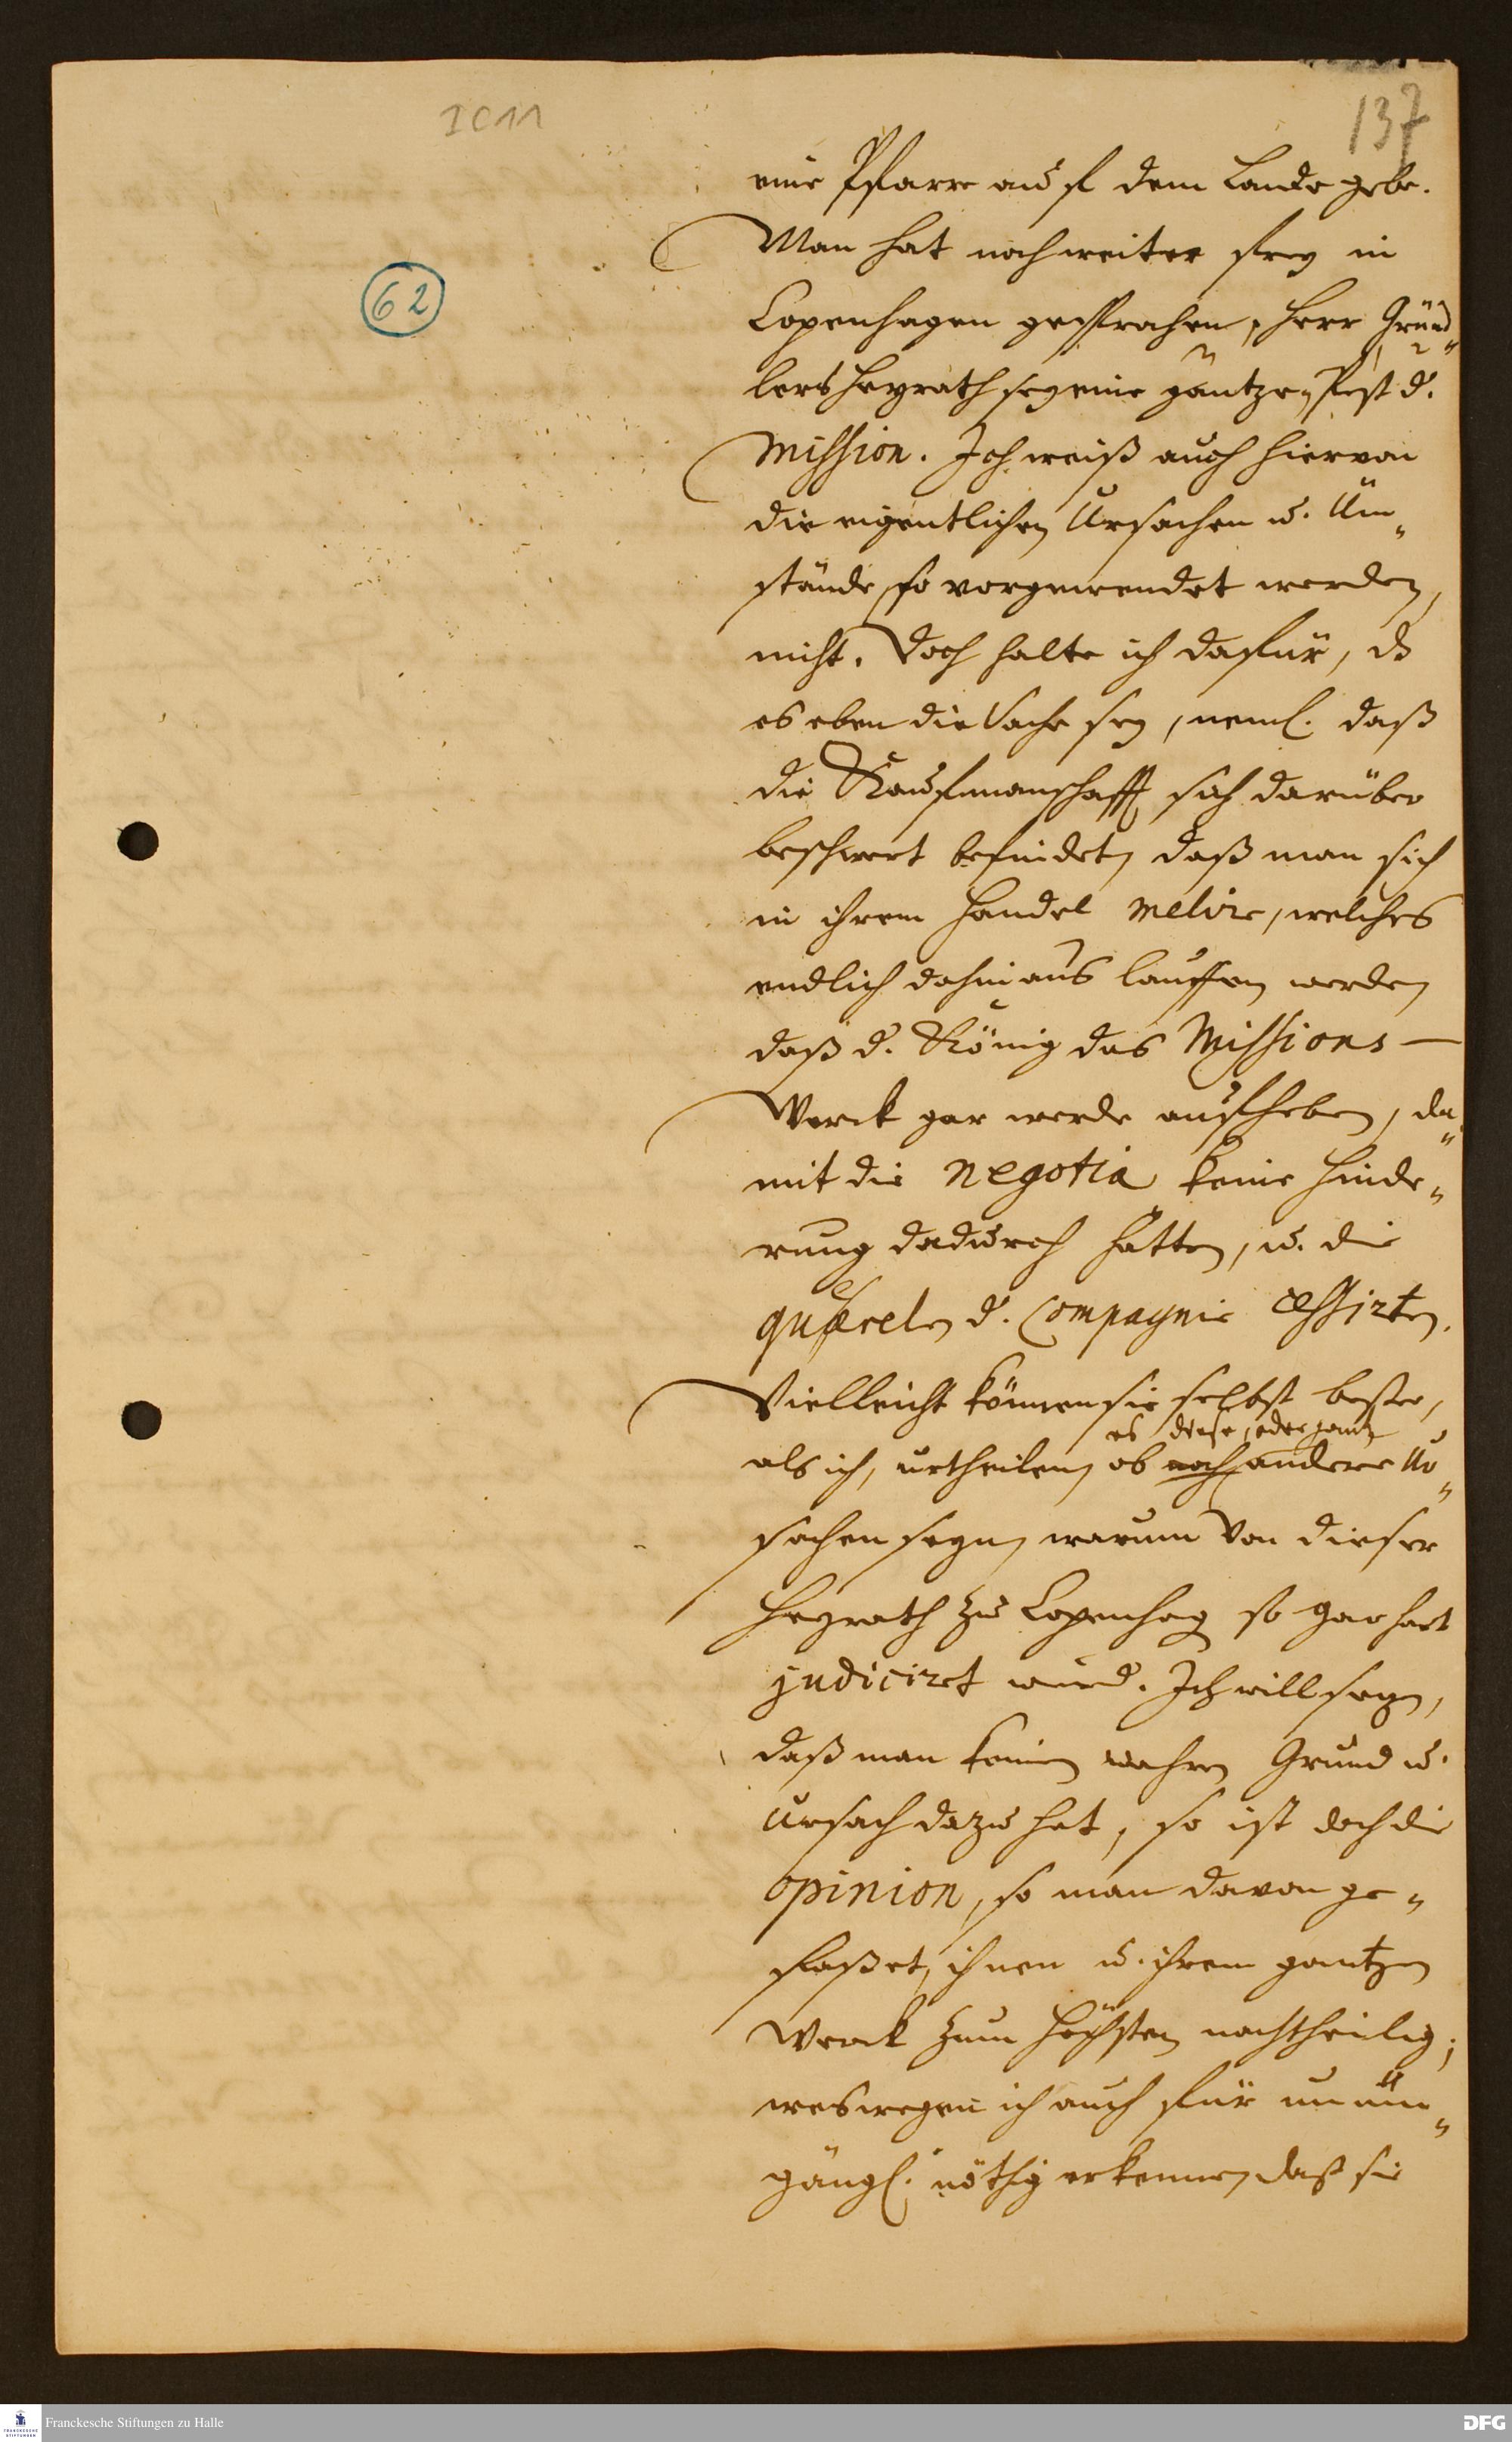 IC11
137
62
eine Pfarre auf dem Lande gebe.
Man hat noch weiter frey in
Copenhagen gesprochen, Herr Gründ„
lers Heyrath sey eine gantze Pest d.
Mission. Ich weiß auch hiervon
die eigentlichen Ursachen u. Üm„
stände, so vorgewendet werden,
nicht. Doch halte ich dafür, ds
es eben die Sache sey, neml. daß
die Kaufmanschafft sich darüber
beschwert befindet, daß man sich
in ihrem Handel melire, welches
endlich dahinaus lauffen werde,
daß d. König das Missions-
Werck gar werde aufheben, da„
mit die negotia keine Hinde„
rung dadurch hätten, u. die
quærelen d. Compagnie cessirten.
Vielleicht können sie selbst besser,
es diese, oder gantz
als ich, urtheilen, ob noch andere Ur„
sachen seyn, warum von dieser
Heyrath zu Copenhag so gar hart
judiciret wird. Ich will setzen,
daß man keinen wahren Grund u.
Ursach dazu hat, so ist doch die
opinion, so man davon ge„
faßet, ihnen u. ihrem gantzen
Werck zum höchsten nachtheilig;
weswegen ich auch für unüm„
gängl. nöthig erkenne, daß sie
Franckesche Stiftungen zu Halle
DFG